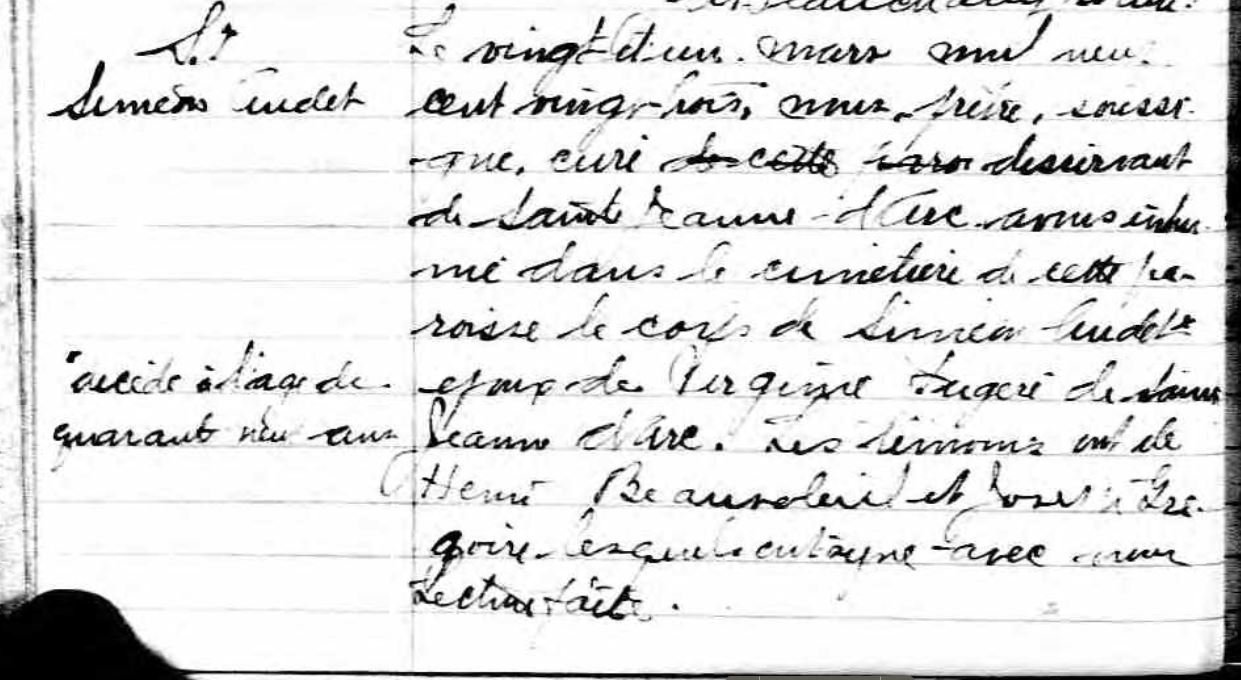 S.7
Siméon Audet
Le vingt et un mars mil neuf
cent vingt-trois, nous, prêtre, soussi-
gné, curé de cette paroi desservant
de Sainte Jeanne-d'Arc avons inhu-
mé dans le cimetière de cette pa-
roisse le corps de Siméon Audet
décédé à l'age de
époux de Virginie Sugère de Sainte
quarant neuf ans
Jeanne d'Arc. Les témoins ont été
Henri Beausoleil et Joseph Gré-
goire lesquels ont signé avec nous
Lecture faite.